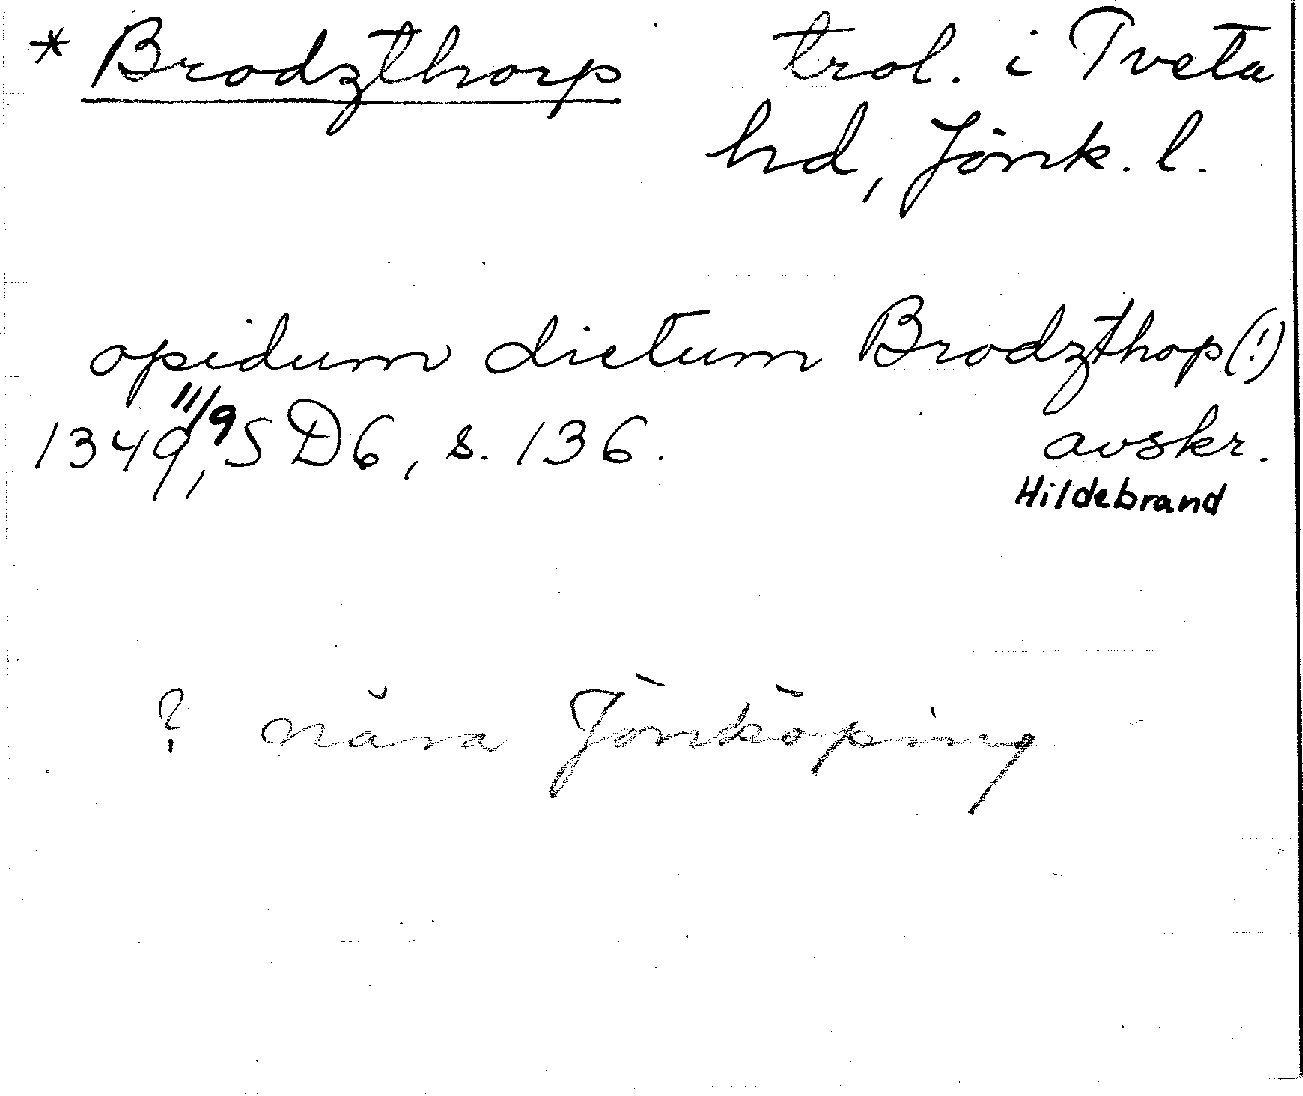 * Brodzthorp trol. i Tveta
hd, Jönk. l.
opidum dictum Brodzthop (!)
1349 11/9, SD 6, s. 136. avskr.
Hildebrand
? nära Jönköping